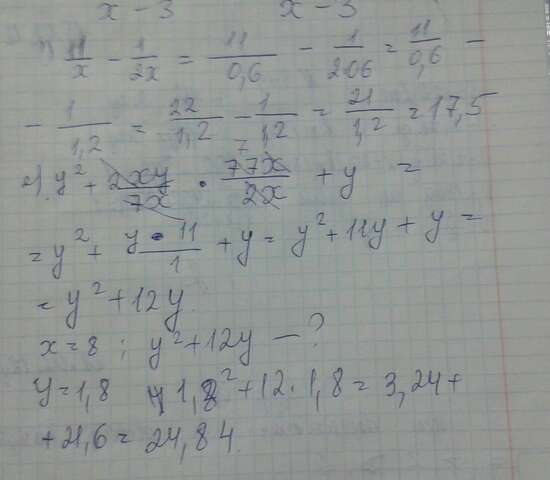 x - 3 x - 3
11/x - 1/2x = 11/0,6 - 1/2·0,6 = 11/0,6 -
- 1/1,2 = 22/1,2 - 1/1,2 = 21/1,2 = 17,5
2). y² + 2xy/7x · 77x/2x + y =
= y² + y · 11/1 + y = y² + 11y + y =
= y² + 12y.
x = 8 ; y² + 12y - ?
y = 1,8 1,8² + 12 · 1,8 = 3,24 +
+ 21,6 = 24,84.